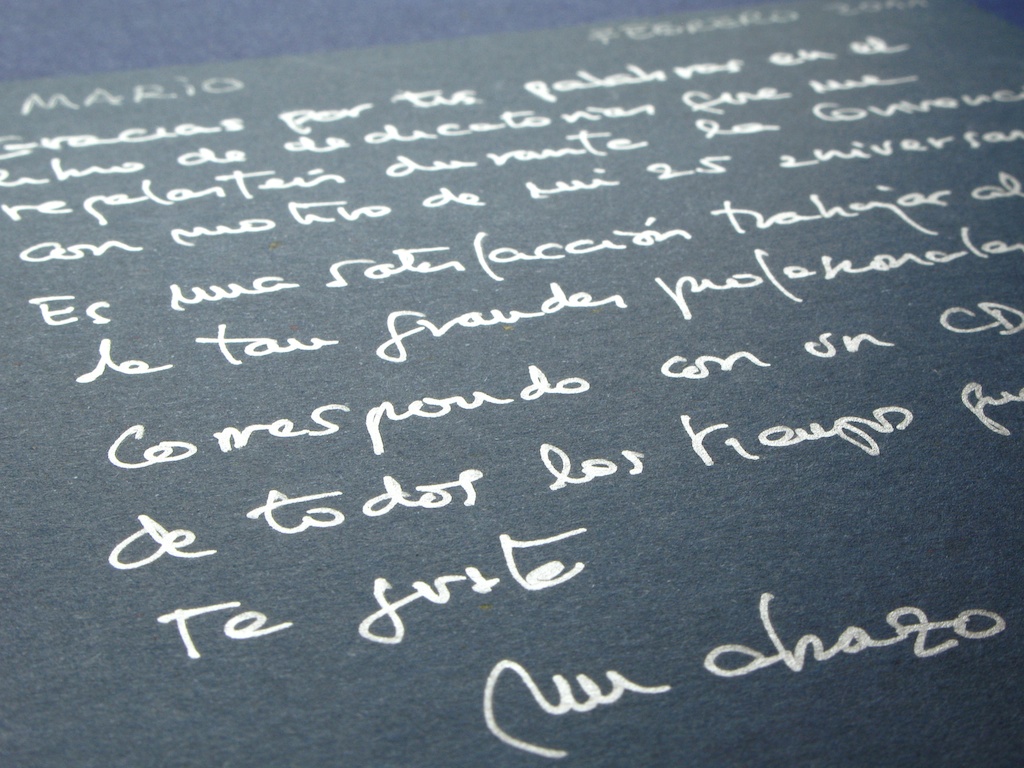 MARIO FEBRERO
Gracias por tus palabras en el
libro de dedicatorias que me
regalasteis durante la
con motivo de mi 25 aniversario
Es una satisfacción trabajar al
de tan grandes profesionales
Correspondo con un CD
de todos los tiempos que
Te guste
Un abrazo